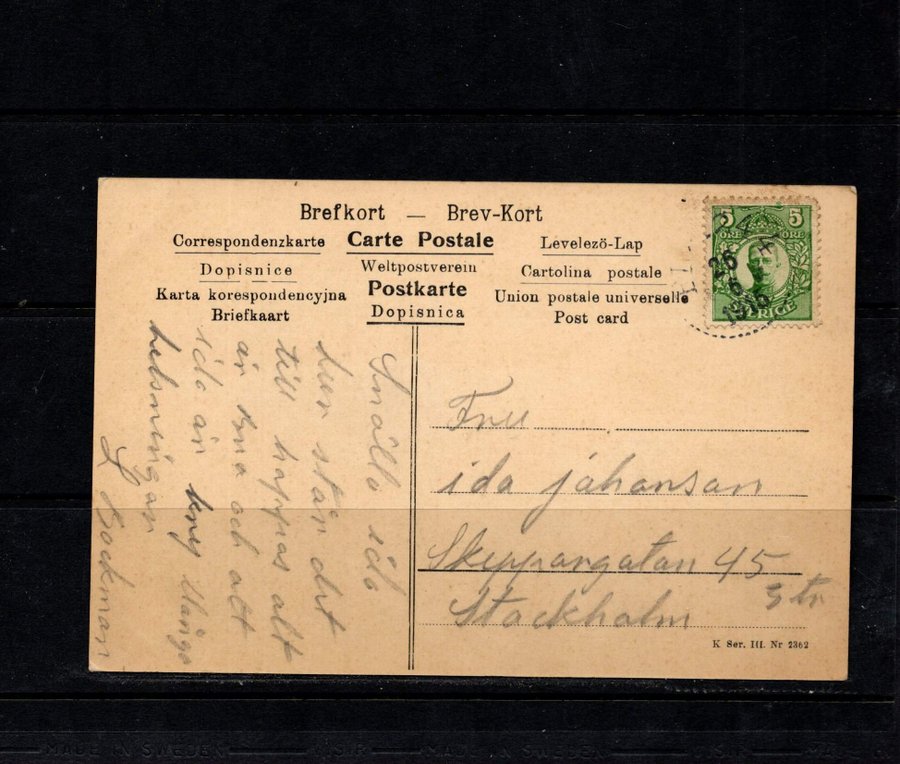 Brefkort — Brev-Kort
Correspondenzkarte Carte Postale Levelezö-Lap
Dopisnice Weltpostverein Cartolina postale
Karta korespondencyjna Postkarte Union postale universelle
Briefkaart Dopisnica Post card
5 5
ÖRE ÖRE
26
6
1915
SVERIGE
Snälla ida
hur står det
till hoppas allt
är bra och att
ida är kry Många
helsningar
Bockman
Fru
ida johansan
Skeppargatan 45
3 tr
Stockholm
K Ser. III. Nr 2362
MADE IN SWEDEN